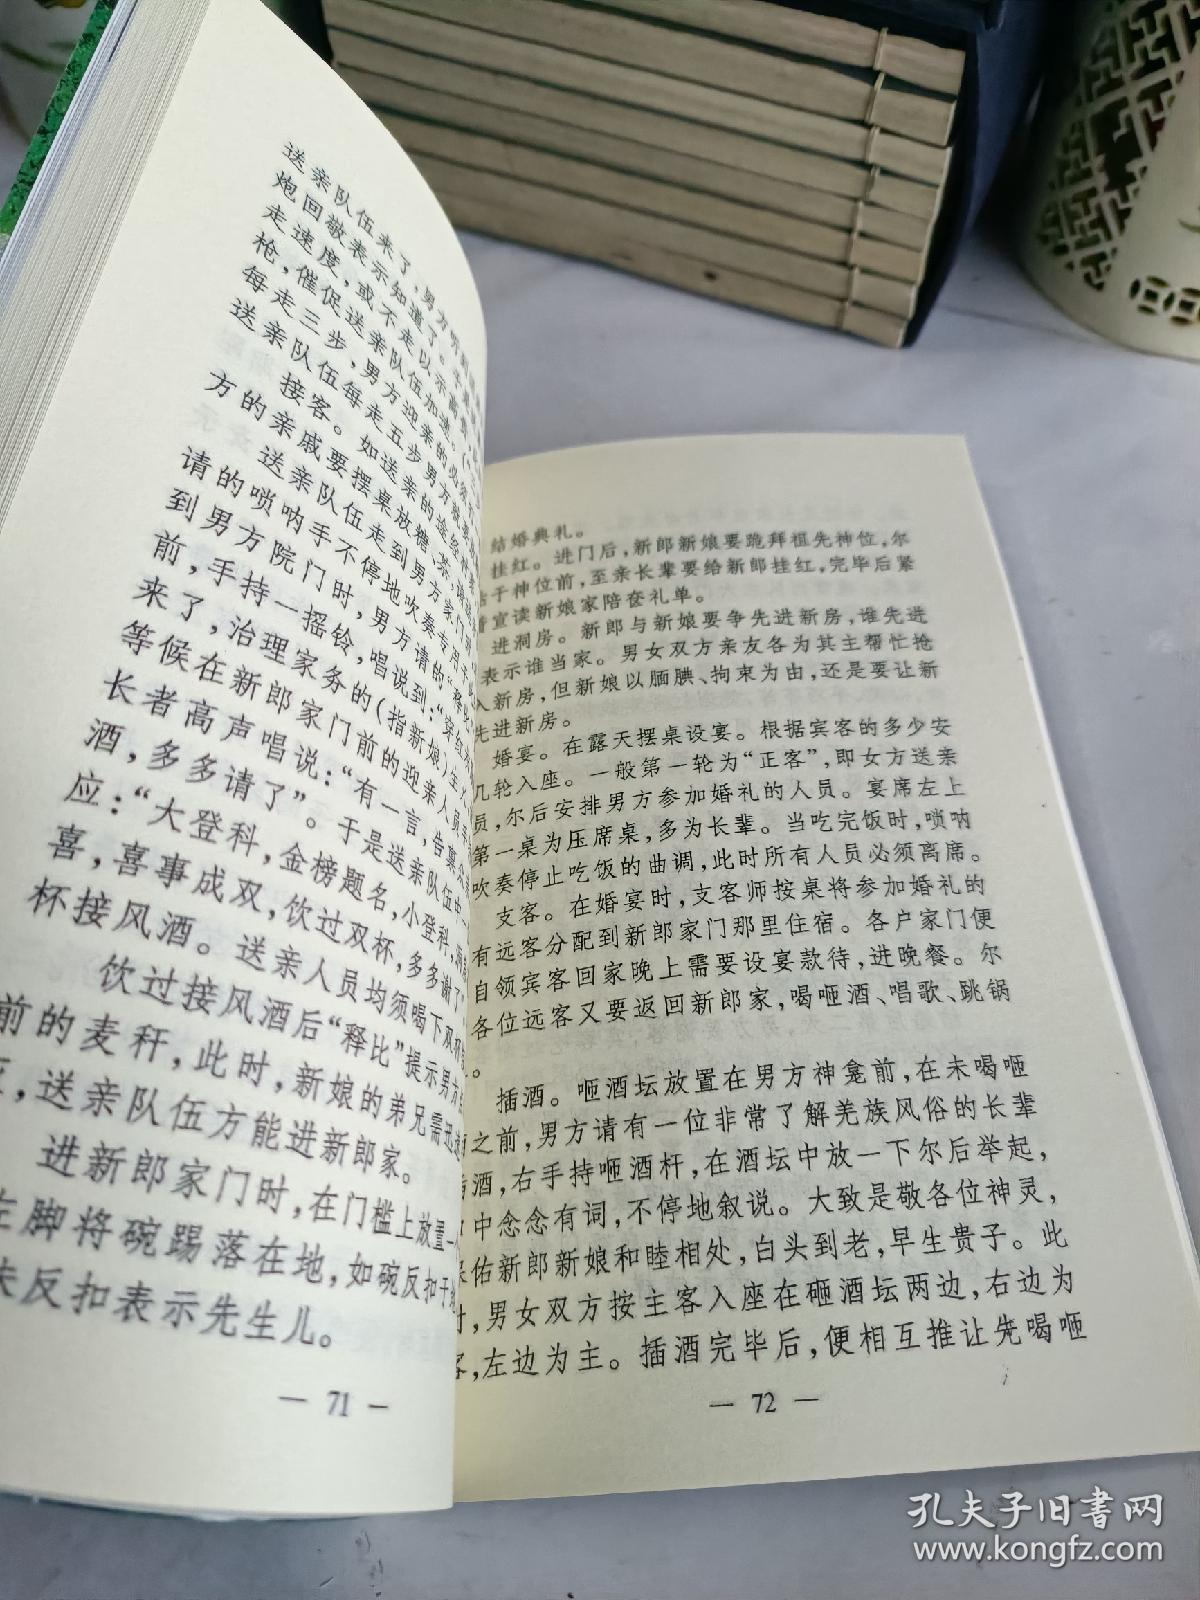 送亲队伍来了,男方听到
炮回敬表示知道了。
走速度,或不走以示高贵
枪,催促送亲队伍加速。
每走三步,男方迎亲的必须
送亲队伍每走五步男方就要
接客。如送亲的途经
方的亲戚要摆桌放糖、茶、
送亲队伍走到男方家门
请的唢呐手不停地吹奏专用
到男方院门时,男方请的“释比”
前,手持一摇铃,唱说到:“穿红
来了,治理家务的(指新娘)生人
等候在新郎家门前的迎亲人员
长者高声唱说:“有一言,告禀
酒,多多请了”。于是送亲队伍中
应:“大登科,金榜题名,小登科,洞
喜,喜事成双,饮过双杯,多多谢了
杯接风酒。送亲人员均须喝下双杯
饮过接风酒后“释比”提示男方
前的麦秆,此时,新娘的弟兄需迅速
,送亲队伍方能进新郎家。
进新郎家门时,在门槛上放置一
左脚将碗踢落在地,如碗反扣于地
未反扣表示先生儿。
— 71 —
结婚典礼。
挂红。进门后,新郎新娘要跪拜祖先神位,尔
于神位前,至亲长辈要给新郎挂红,完毕后紧
宣读新娘家陪奁礼单。
进洞房。新郎与新娘要争先进新房,谁先进
表示谁当家。男女双方亲友各为其主帮忙抢
入新房,但新娘以腼腆、拘束为由,还是要让新
先进新房。
婚宴。在露天摆桌设宴。根据宾客的多少安
几轮入座。一般第一轮为“正客”,即女方送亲
员,尔后安排男方参加婚礼的人员。宴席左上
第一桌为压席桌,多为长辈。当吃完饭时,唢呐
吹奏停止吃饭的曲调,此时所有人员必须离席。
支客。在婚宴时,支客师按桌将参加婚礼的
有远客分配到新郎家门那里住宿。各户家门便
自领宾客回家晚上需要设宴款待,进晚餐。尔
各位远客又要返回新郎家,喝咂酒、唱歌、跳锅
。
插酒。咂酒坛放置在男方神龛前,在未喝咂
之前,男方请有一位非常了解羌族风俗的长辈
酒,右手持咂酒杆,在酒坛中放一下尔后举起,
中念念有词,不停地叙说。大致是敬各位神灵,
佑新郎新娘和睦相处,白头到老,早生贵子。此
时,男女双方按主客入座在砸酒坛两边,右边为
客,左边为主。插酒完毕后,便相互推让先喝咂
— 72 —
孔夫子旧书网
www.kongfz.com